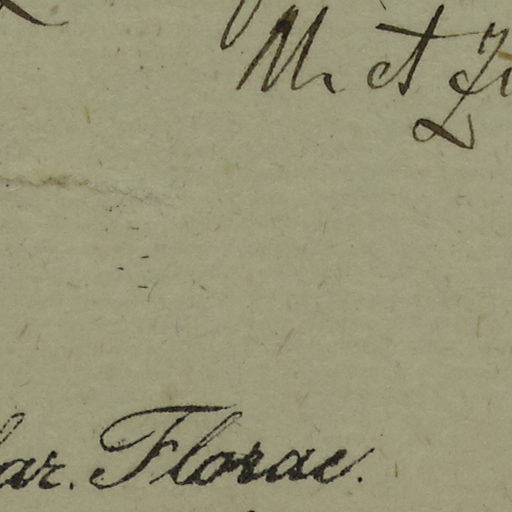 M. et Zu
ar. Florae.